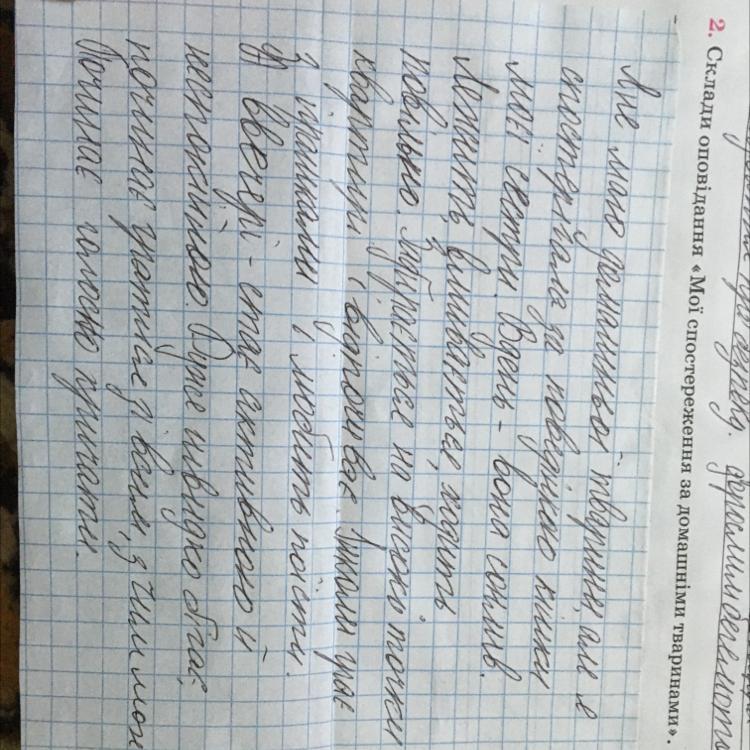 2. Склади оповідання «Мої спостереження за домашніми тваринами».
Я не маю домашньої тварини, але я
спостерігала за поведінкою кішки
моєї сестри. Вдень - вона сонлив.
Лежить, вмивається, ходить
повільно. Забирається на високі точки
квартири і відпочиває. Інколи грає
з іграшками і любить поїсти.
Ввечері - стає активною й
неспокійною. Дуже швидко бігає,
починає гратися зі всім, з чим мож
Починає голосно кричати.